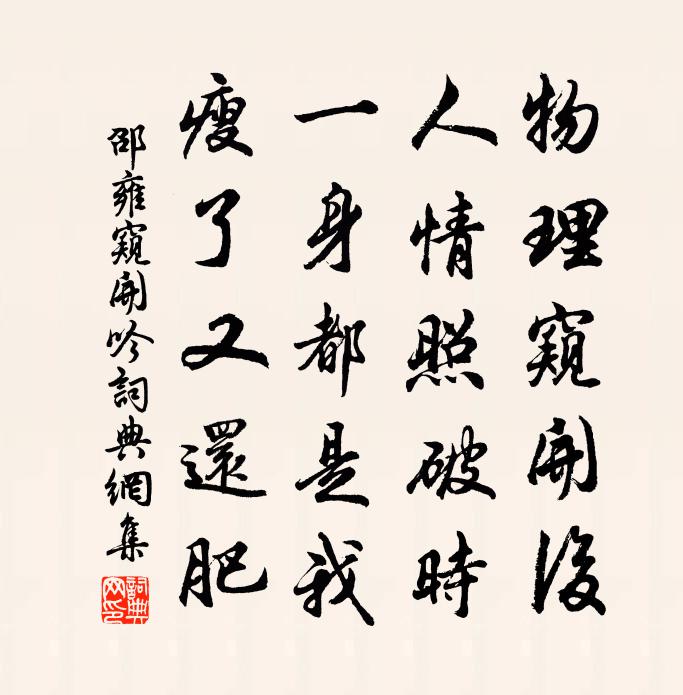 物理窺開後
人情照破時
一身都是我
瘦了又還肥
邵雍窺開吟詞典網集
詞典網印